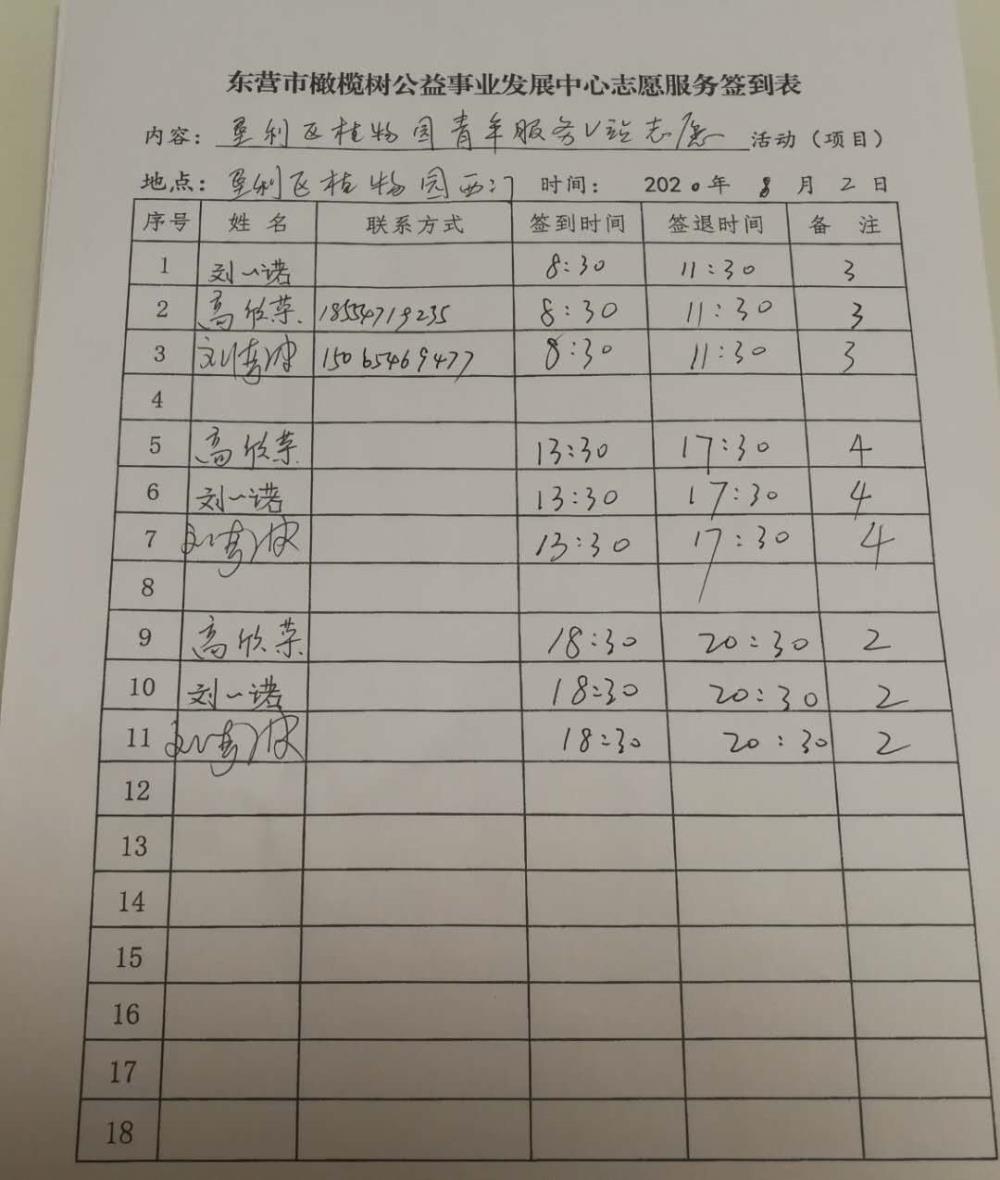 东营市橄榄树公益事业发展中心志愿服务签到表
内容: 垦利区植物园青年服务V站志愿 活动（项目）
地点: 垦利区植物园西门 时间: 2020年 8月 2日
序号 姓名 联系方式 签到时间 签退时间 备注
1 刘一诺 8:30 11:30 3
2 高欣荣 18554719235 8:30 11:30 3
3 15065469477 8:30 11:30 3
4
5 高欣荣 13:30 17:30 4
6 刘一诺 13:30 17:30 4
7 13:30 17:30 4
8
9 高欣荣 18:30 20:30 2
10 刘一诺 18:30 20:30 2
11 18:30 20:30 2
12
13
14
15
16
17
18